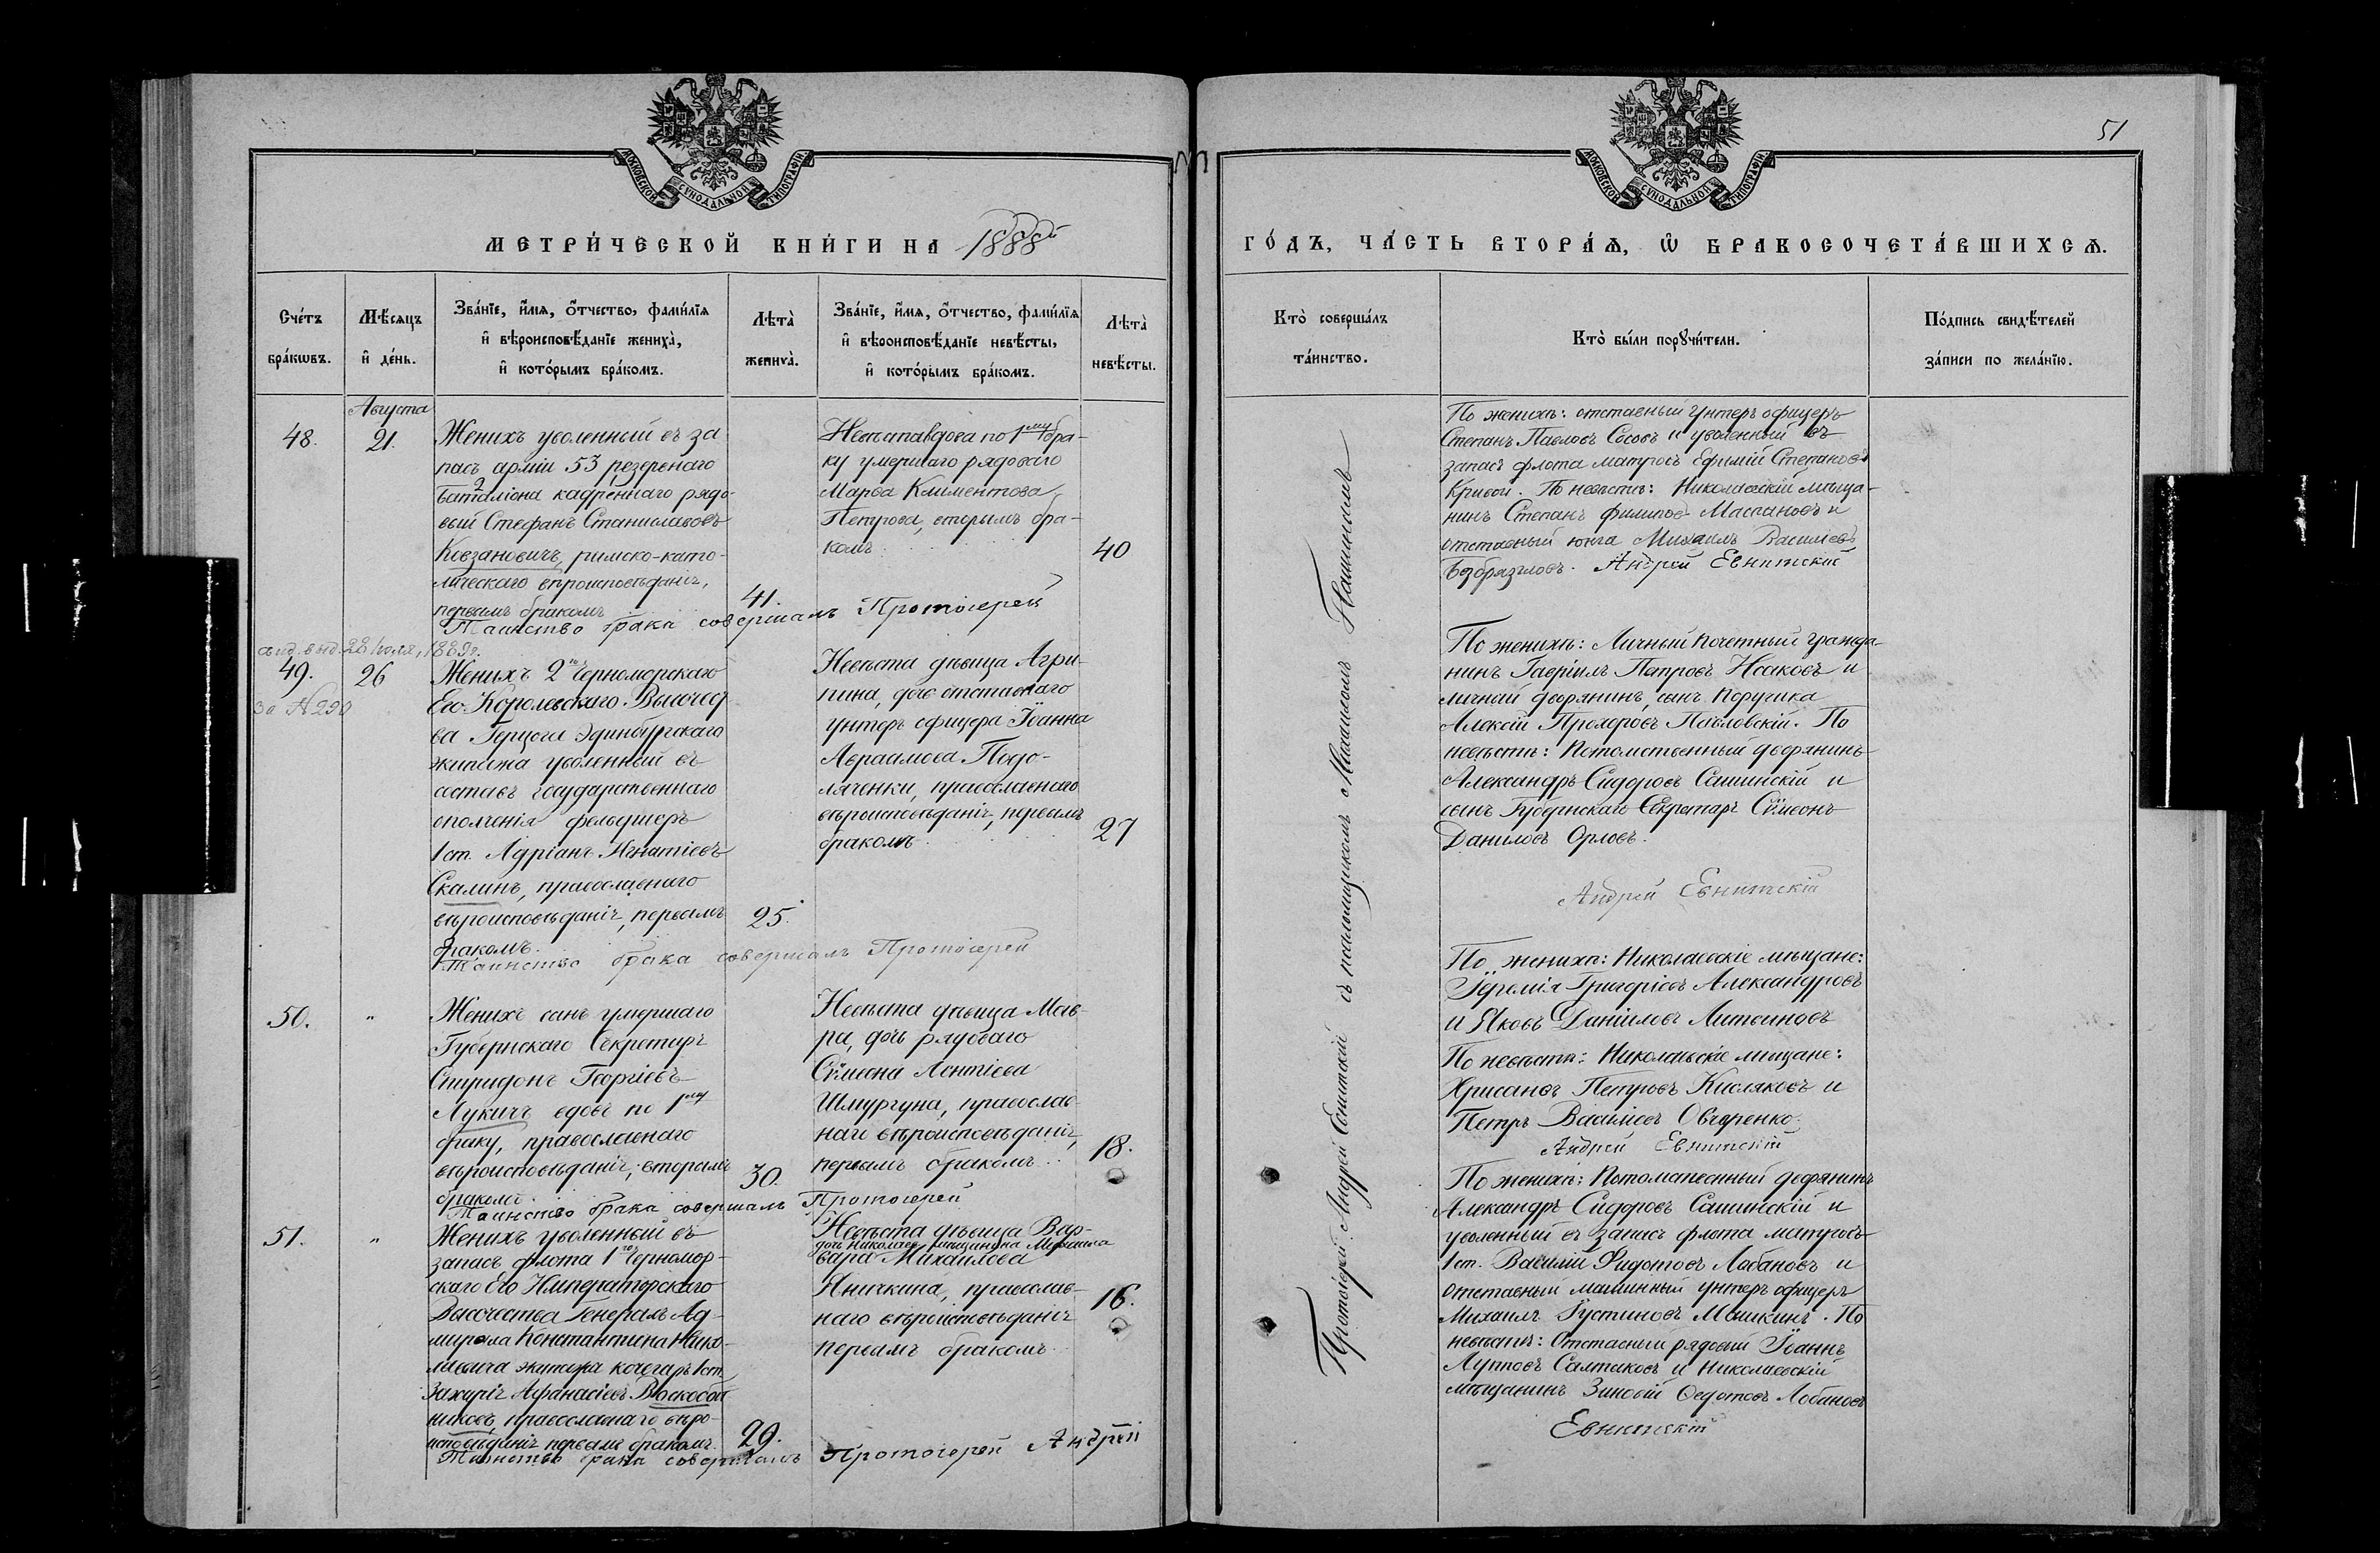 51
МОСКОВСКОЙ СУНОДАЛЬНОЙ ТИПОГРАФІИ
МОСКОВСКОЙ СУНОДАЛЬНОЙ ТИПОГРАФІИ
МЕТРИ́ЧЕСКОЙ КНИ́ГИ НА 1888й
ГО́ДЪ, ЧА́СТЬ ВТОРА́Я, Ѡ БРАКОСОЧЕТА́ВШИХСЯ.
Сче́тъ
бра́кѡвъ.
Мѣ́сяцъ
и҆ де́нь.
Зва́нїе, и҆́мя, о҆́тчество, фами́лїя
и҆ вѣроисповѣ́данїе жениха̀,
и҆ кото́рымъ бра́комъ.
Лѣта̀
жениха̀.
Зва́нїе, и҆́мя, о҆́тчество, фами́лїя
и҆ вѣроисповѣ́данїе невѣ́сты,
и҆ кото́рымъ бра́комъ.
Лѣта̀
невѣ́сты.
Кто̀ соверша́лъ
та́инство.
Кто̀ бы́ли порꙋчи́тели.
По́дпись свидѣ́телей
за́писи по жела́нїю.
Августа
48.
21.
Женихъ уволенный въ за
пасъ арміи 53 резервнаго
баталіона кадреннаго рядо-
вый Стефанъ Станиславовъ
Ковзановичъ, римско-като-
лическаго вѣроисповѣданія,
первымъ бракомъ
41.
Невѣста вдова по 1му бра-
ку умершаго рядоваго
Марѳа Климентова
Петрова, вторымъ бра-
комъ.
40
Таинство брака совершалъ Протоіерей
По женихѣ: отставный Унтеръ офицеръ
Степанъ Павловъ Сосовъ и уволенный въ
запасъ флота матросъ Ефимій Степановъ
Кривой. По невѣстѣ: Николаевскій мѣща-
нинъ Степанъ Филипов Маспановъ и
отставный юнга Михаилъ Васильевъ
Безбразловъ. Андрей Евнитскій
выд. 28 Іюля, 1889г.
49.
за № 290
26
Женихъ 2го Черноморскаго
Его Королевскаго Высочест
ва Герцога Эдинбургскаго
экипажа уволенный въ
составъ государственнаго
ополченія фельдшеръ
1 ст. Адріанъ Игнатіевъ
Скалинъ, православнаго
вѣроисповѣданія, первымъ
бракомъ.
25.
Невѣста дѣвица Агри-
пина, дочь отставнаго
унтеръ офицера Іоанна
Авраамова Подо-
ляченки, православнаго
вѣроисповѣданія, первымъ
бракомъ
27
Таинство брака совершалъ Протоіерей
По женихѣ: Личный почетный гражда-
нинъ Гавріилъ Петровъ Исаковъ и
личный дворянинъ, сынъ поручика
Алексій Прохоровъ Павловскій. По
невѣстѣ: Потомственный дворянинъ
Александръ Сидоровъ Сашинскій и
сынъ Губернскаго Секретаря Сѵмеонъ
Даниловъ Орловъ.
Андрей Евнитскій
50.
"
Женихъ сынъ умершаго
Губернскаго Секретаря
Спиридонъ Георгіевъ
Лукичъ вдовъ по 1му
браку, православнаго
вѣроисповѣданія, вторымъ
бракомъ.
30.
Невѣста дѣвица Мав-
ра, дочь рядоваго
Сѵмеона Леонтіева
Шмургуна, православ-
наго вѣроисповѣданія,
первымъ бракомъ
18.
Таинство брака совершалъ Протоіерей
По женихѣ: Николаевскіе мѣщане:
Іеремія Григоріевъ Александровъ
и Яковъ Данииловъ Литвиновъ
По невѣстѣ: Николаевскіе мѣщане:
Хрисанѳъ Петровъ Кисляковъ и
Петръ Василіевъ Овчаренко.
Андрей Евнитскій
51.
"
Женихъ уволенный въ
запасъ флота 1го Черномор-
скаго Его Императорскаго
Высочества Генералъ Ад-
мирала Константина Нико-
лаевича экипажа кочегаръ 1 ст.
Захарія Афанасіевъ Воскобой
никовъ, православнаго вѣро-
исповѣданія первымъ бракомъ.
29.
Невѣста дѣвица Вар-
дочь Николаев. мѣщанина Михаила
вара Михаилова
Яничкина, православ-
наго вѣроисповѣданія
первымъ бракомъ
16.
Таинство брака совершалъ Протоіерей Андрей
По женихѣ: Потомственный дворянинъ
Александръ Сидоровъ Сашинскій и
уволенный въ запасъ флота матросъ
1 ст. Василій Ѳидотовъ Лобановъ и
отставный машинный унтеръ офицеръ
Михаилъ Іустиновъ Мошкинъ. По
невѣстѣ: Отставный рядовый Іоаннъ
Лупповъ Салтыковъ и Николаевскій
мѣщанинъ Зиновій Ѳедотовъ Лобановъ
Евнитскій
Протоіерей Андрей Евнитскій съ псаломщикомъ Михаиломъ